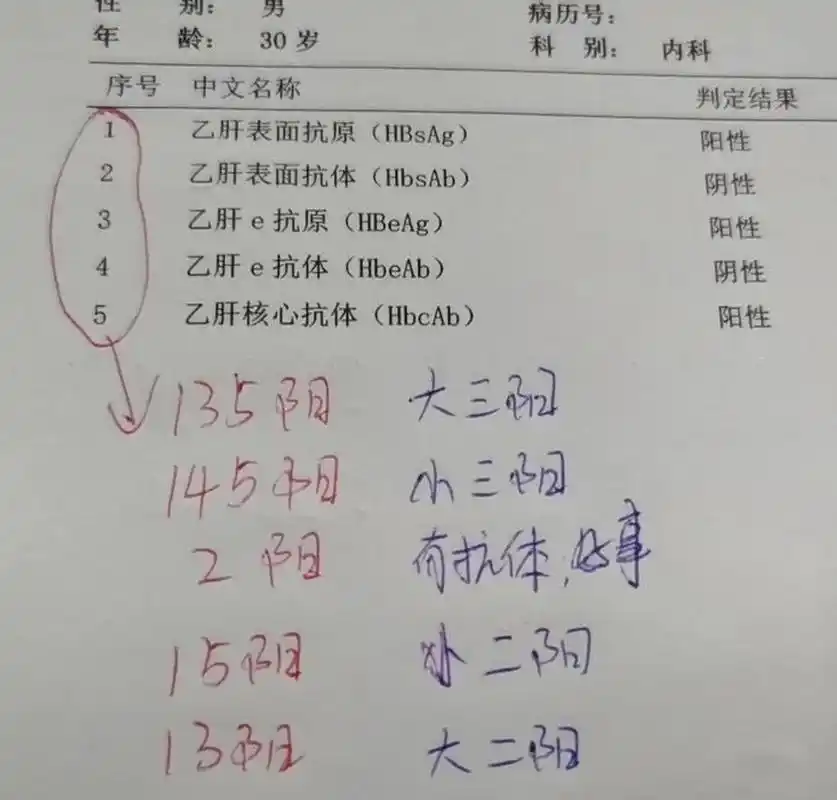 性 别： 男 病历号：
年 龄： 30 岁 科 别： 内科
序号 中文名称 判定结果
1 乙肝表面抗原（HBsAg） 阳性
2 乙肝表面抗体（HbsAb） 阴性
3 乙肝 e 抗原（HBeAg） 阳性
4 乙肝 e 抗体（HbeAb） 阴性
5 乙肝核心抗体（HbcAb） 阳性
135阳 大三阳
145阳 小三阳
2 阳 有抗体，好事
15阳 小二阳
13阳 大二阳